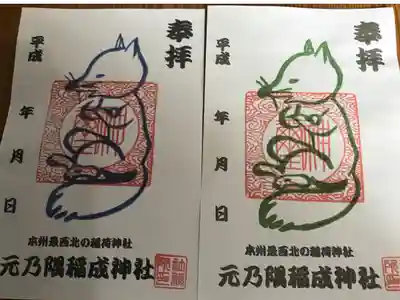 奉拝
平成 年 月 日
本州最西北の稲荷神社
元乃隅稲成神社
奉拝
平成 年 月 日
本州最西北の稲荷神社
元乃隅稲成神社